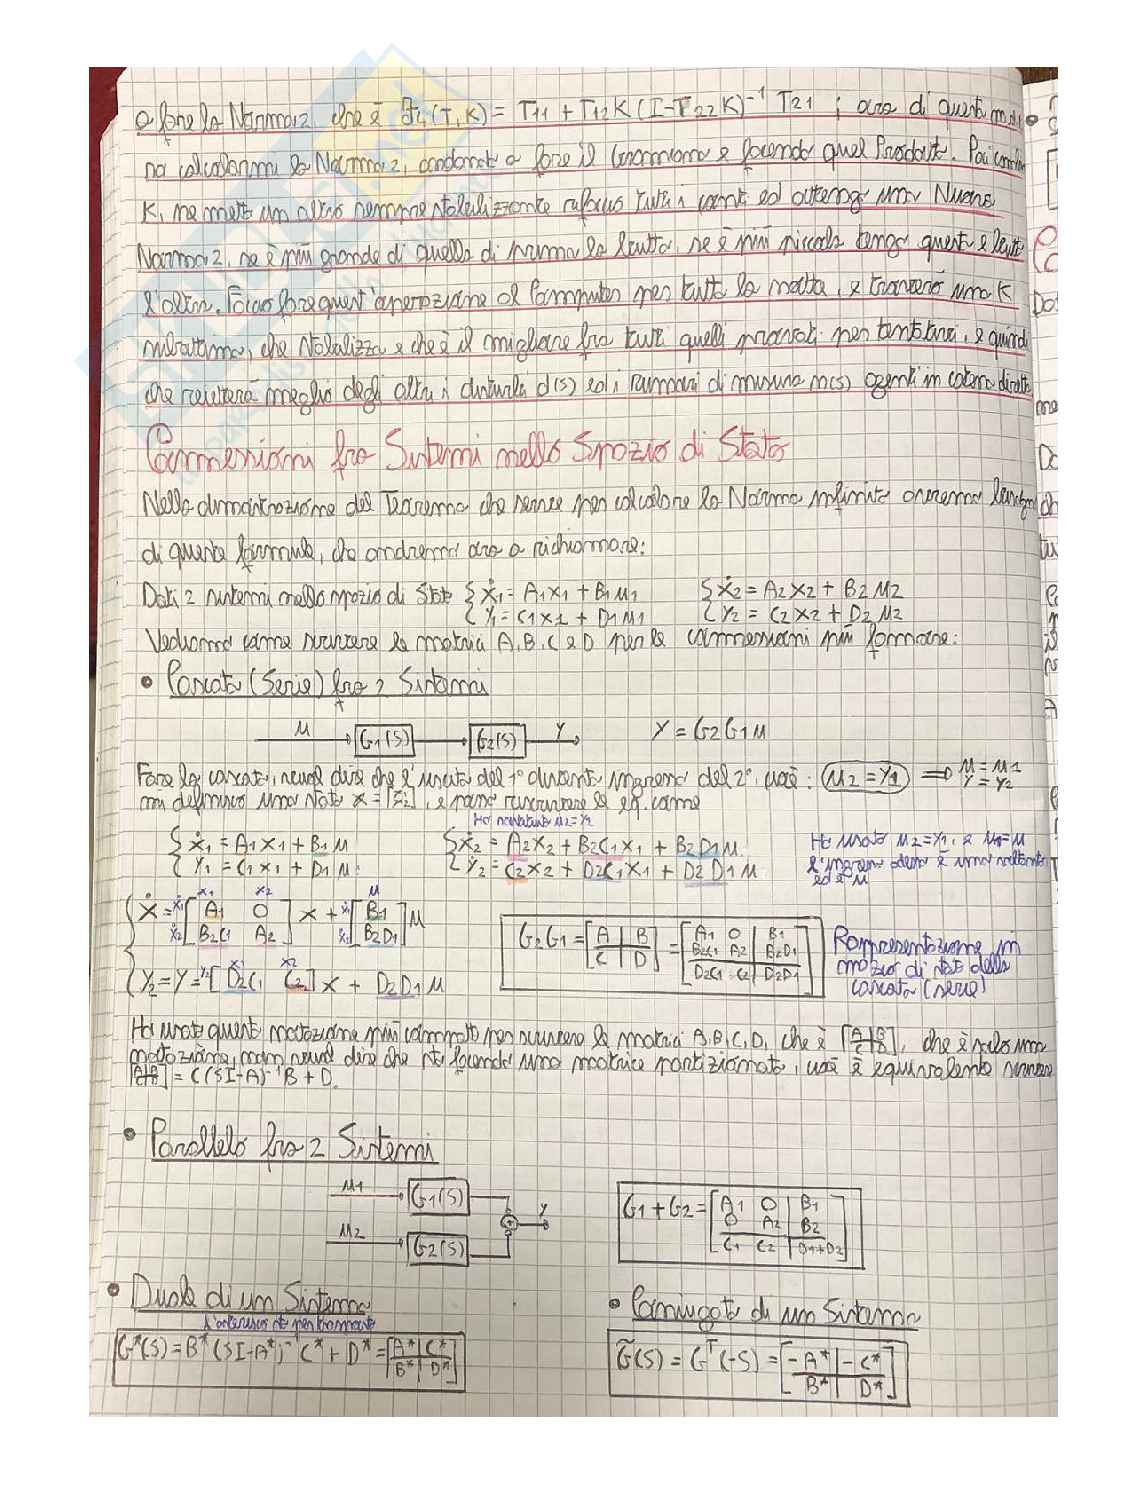 a fare la Norma2 che è F_L(T,K) = T11 + T12 K (I-T22 K)^-1 T21 ; ora di questa
calcolarmi la Norma2, andando a fare il Gramiano e facendo quel Prodotto. Poi cambio
K, ne metto un altro sempre stabilizzante rifaccio tutti i conti ed ottengo una Nuova
Norma2, se è più grande di quella di prima la butto, se è più piccola tengo questa e butto
l'altra. Faccio fare quest'operazione al Computer per tutta la notte, e troverò una K
subottima, che stabilizza e che è il migliore fra tutti quelli provati per tentativi, e quindi
che reietterà meglio degli altri i disturbi d(s) ed i rumori di misura m(s) agenti in catena diretta
Connessioni fra Sistemi nello Spazio di Stato
Nella dimostrazione del Teorema che serve per calcolare la Norma infinito avremo bisogno
di queste formule, che andremo ora a richiamare:
Dati 2 sistemi nello spazio di Stato { ẋ1 = A1x1 + B1u1 { ẋ2 = A2x2 + B2u2
y1 = C1x1 + D1u1 y2 = C2x2 + D2u2
Vediamo come scrivere le matrici A,B,C e D per le connessioni più famose:
• Cascata (Serie) fra 2 Sistemi
u G1(s) G2(s) y y = G2G1u
Fare la cascata, vuol dire che l'uscita del 1° diventa ingresso del 2°, cioè: u2 = y1 ⟹ u = u1
y = y2
mi definisco uno stato x = [x1 x2], e posso riscrivere le eq. come
Ho sostituito u2=y1
{ ẋ1 = A1x1 + B1u { ẋ2 = A2x2 + B2C1x1 + B2D1u Ho usato u2=y1, e u1=u
y1 = C1x1 + D1u y2 = C2x2 + D2C1x1 + D2D1u l'ingresso adesso è uno soltanto
ed è u
x1 x2 u
{ ẋ = ẋ1 ẋ2 [A1 0 B2C1 A2] x + ẋ1 ẋ2 [B1 B2D1] u
G2G1 = [A B C D] = [A1 0 B1 B2C1 A2 B2D1 D2C1 C2 D2D1]
Rappresentazione in
spazio di stato della
cascata (serie)
x1 x2
y2 = y = y2 [D2C1 C2] x + D2D1u
Ho usato questa notazione più compatta per scrivere le matrici A,B,C,D, che è [A B C D], che è solo una
notazione, non vuol dire che sto facendo una matrice partizionata, cioè è equivalente scrivere
[A B C D] = C(sI-A)^-1 B + D.
• Parallelo fra 2 Sistemi
u1 G1(s)
y
u2 G2(s)
G1 + G2 = [A1 0 B1 0 A2 B2 C1 C2 D1+D2]
• Duale di un Sistema
G*(s) = B*(sI-A*)^-1 C* + D* = [A* C* B* D*]
• Coniugato di un Sistema
G̃(s) = G^T(-s) = [-A* -C* B* D*]